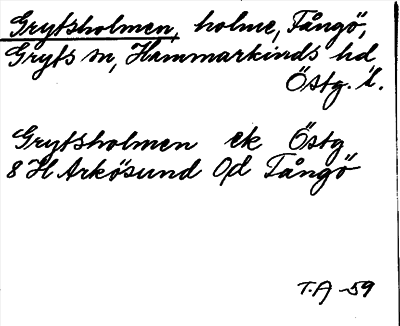 Grytsholmen, holme, Fångö,
Gryts sn, Hammarkinds hd,
Östg. l.
Grytsholmen ek Östg
8 H Arkösund O/d Fångö
T.A -59